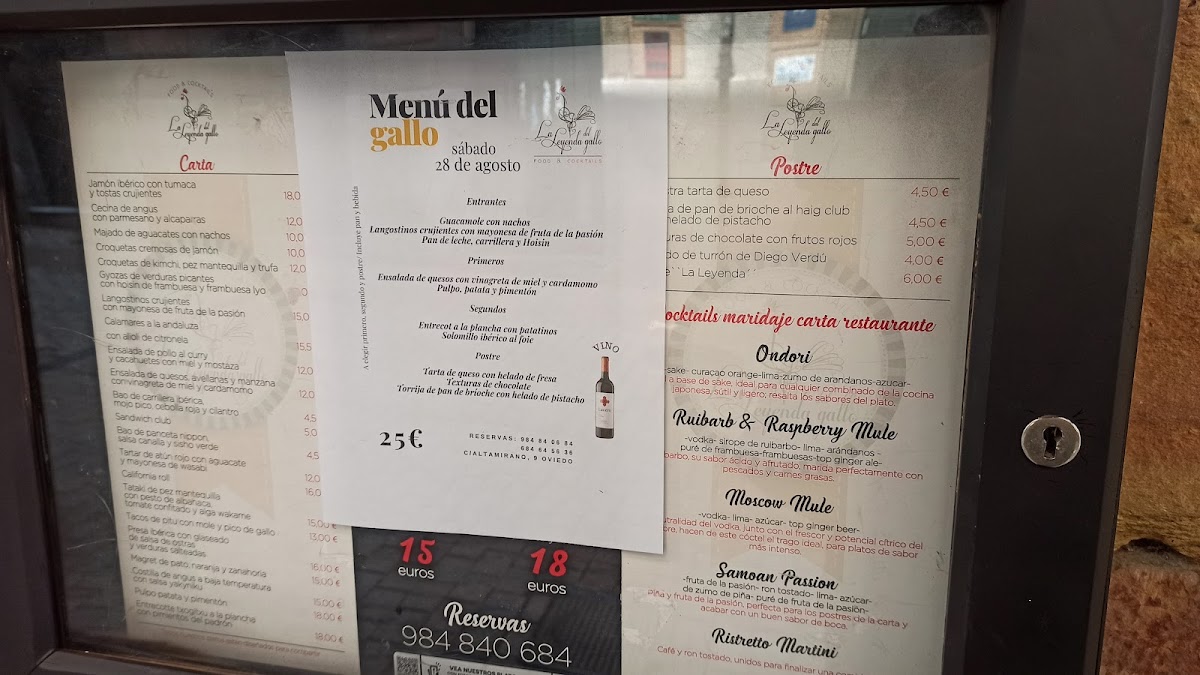 FOOD & COCKTAILS
La Leyenda del gallo
Carta
Jamón ibérico con tumaca
y tostas crujientes 18,0
Cecina de angus
con parmesano y alcapairras 12,0
Majado de aguacates con nachos 10,0
Croquetas cremosas de jamón 10,0
Croquetas de kimchi, pez mantequilla y trufa 12,0
Gyozas de verduras picantes
con hoisin de frambuesa y frambuesa lyo
Langostinos crujientes
con mayonesa de fruta de la pasión
Calamares a la andaluza
con alioli de citronela 15,5
Ensalada de pollo al curry
y cacahuetes con miel y mostaza 12,0
Ensalada de quesos, avellanas y manzana
con vinagreta de miel y cardamomo 12,0
Bao de carrillera ibérica,
mojo pico, cebolla roja y cilantro 4,5
Sandwich club 5,0
Bao de panceta nippon,
salsa canalla y sisho verde 4,5
Tartar de atún rojo con aguacate
y mayonesa de wasabi
California roll 12,0
Tataki de pez mantequilla 16,0
con pesto de albahaca,
tomate confitado y alga wakame
Tacos de pitu con mole y pico de gallo 15,00 €
Presa ibérica con glaseado 13,00 €
de salsa de ostras
y verduras salteadas
Magret de pato, naranja y zanahoria 16,00 €
Costilla de angus a baja temperatura 15,00 €
con salsa yakyniku
Pulpo patata y pimentón 15,00 €
Entrecotte txogitxu a la plancha 18,00 €
con pimientos del padrón
18,00 €
Menú del
gallo
sábado
28 de agosto
La Leyenda del gallo
FOOD & COCKTAILS
A elegir primero, segundo y postre/ Incluye pan y bebida
Entrantes
Guacamole con nachos
Langostinos crujientes con mayonesa de fruta de la pasión
Pan de leche, carrillera y Hoisin
Primeros
Ensalada de quesos con vinagreta de miel y cardamomo
Pulpo, patata y pimentón
Segundos
Entrecot a la plancha con patatinos
Solomillo ibérico al foie
Postre
Tarta de queso con helado de fresa
Texturas de chocolate
Torrija de pan de brioche con helado de pistacho
VINO
25€
RESERVAS: 984 84 06 84
684 64 56 36
C\ALTAMIRANO, 9 OVIEDO
15
euros
18
euros
Reservas
984 840 684
VEA NUESTROS
La Leyenda del gallo
Postre
stra tarta de queso 4,50 €
a de pan de brioche al haig club
helado de pistacho 4,50 €
uras de chocolate con frutos rojos 5,00 €
do de turrón de Diego Verdú 4,00 €
è``La Leyenda`` 6,00 €
ocktails maridaje carta restaurante
Ondori
-sake- curaçao orange-lima-zumo de arandanos-azúcar-
a base de sake, ideal para cualquier combinado de la cocina
japonesa, sútil y ligero, resalta los sabores del plato.
Ruibarb & Raspberry Mule
-vodka- sirope de ruibarbo- lima- arándanos -
puré de frambuesa-frambuesas-top ginger ale-
barbo, su sabor ácido y afrutado, marida perfectamente con
pescados y carnes grasas.
Moscow Mule
-vodka- lima- azúcar- top ginger beer-
utralidad del vodka, junto con el frescor y potencial cítrico del
bre, hacen de éste cóctel el trago ideal, para platos de sabor
más intenso.
Samoan Passion
-fruta de la pasión- ron tostado- lima- azúcar-
de zumo de piña- puré de fruta de la pasión-
piña y fruta de la pasión, perfecta para los postres de la carta y
acabar con un buen sabor de boca.
Ristretto Martini
Café y ron tostado, unidos para finalizar una